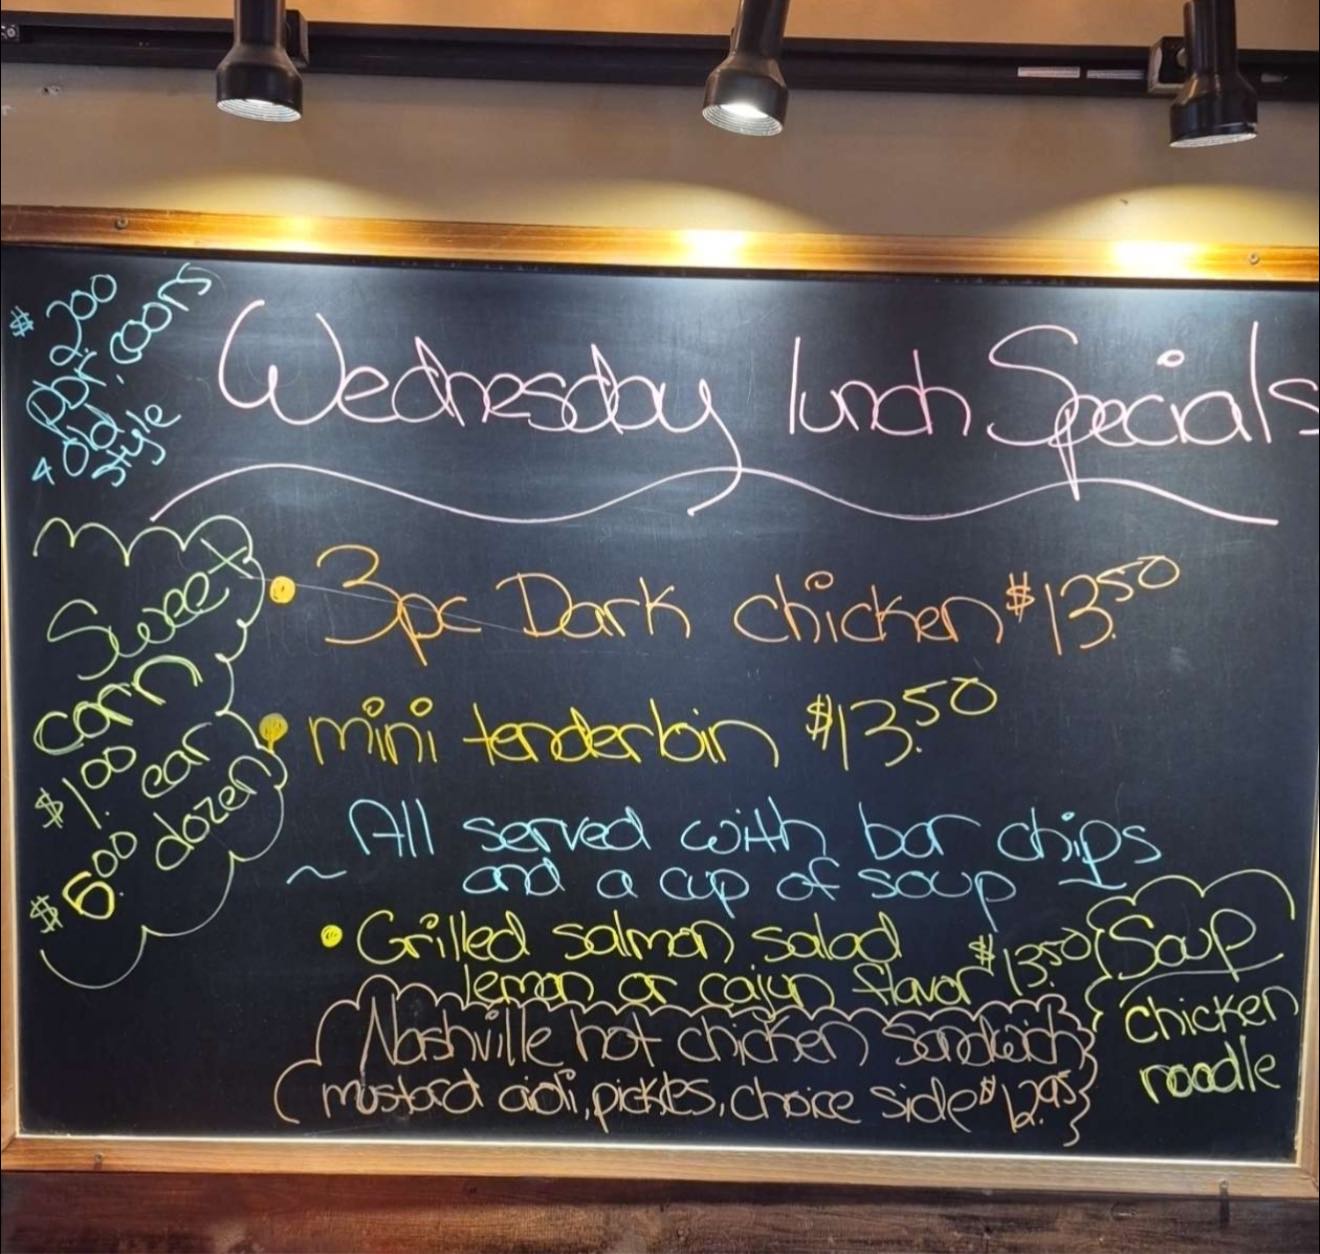 $2.00
pbr, coors
+ Old
style
Wednesday lunch Specials
Sweet
corn
$1.00 ear
$5.00 dozen
• 3pc Dark chicken $13.50
• mini tenderbin $13.50
~ All served with bar chips
and a cup of soup ~
• Grilled salmon salad
lemon or cajun flavor $13.50
Soup
chicken
noodle
Nashville hot chicken sandwich
mustard aioli, pickles, choice side $12.95